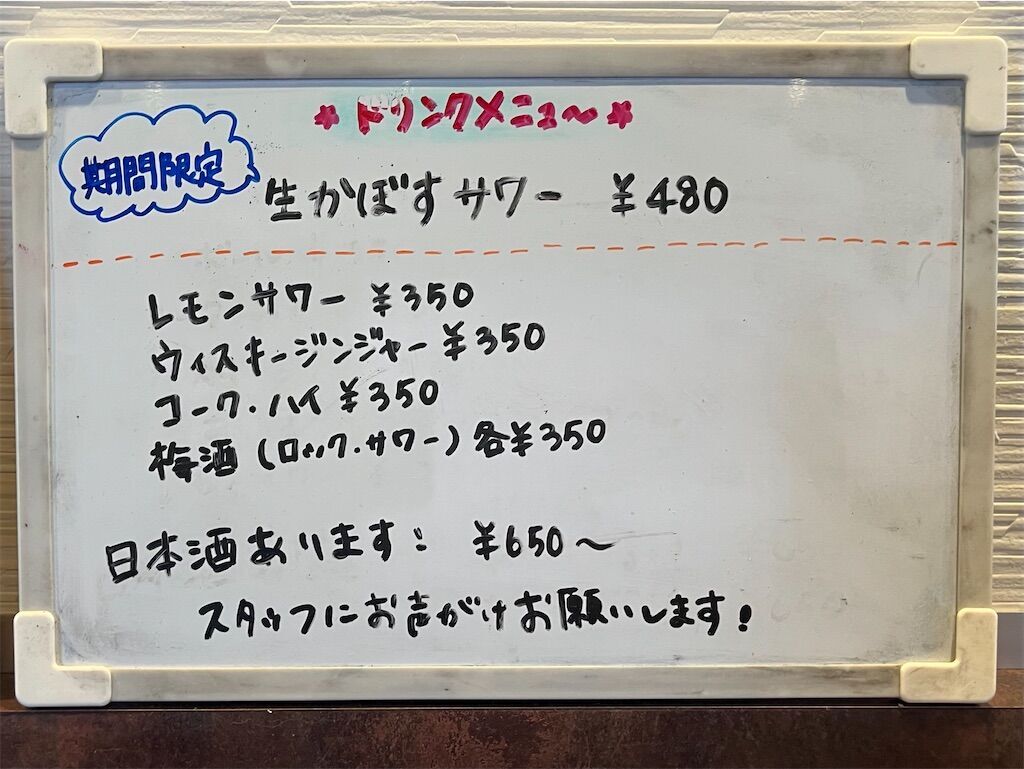 ＊ドリンクメニュ〜＊
期間限定
生かぼすサワー ¥480
レモンサワー ¥350
ウィスキージンジャー ¥350
コーク・ハイ ¥350
梅酒(ロック・サワー)各¥350
日本酒あります: ¥650〜
スタッフにお声がけお願いします!